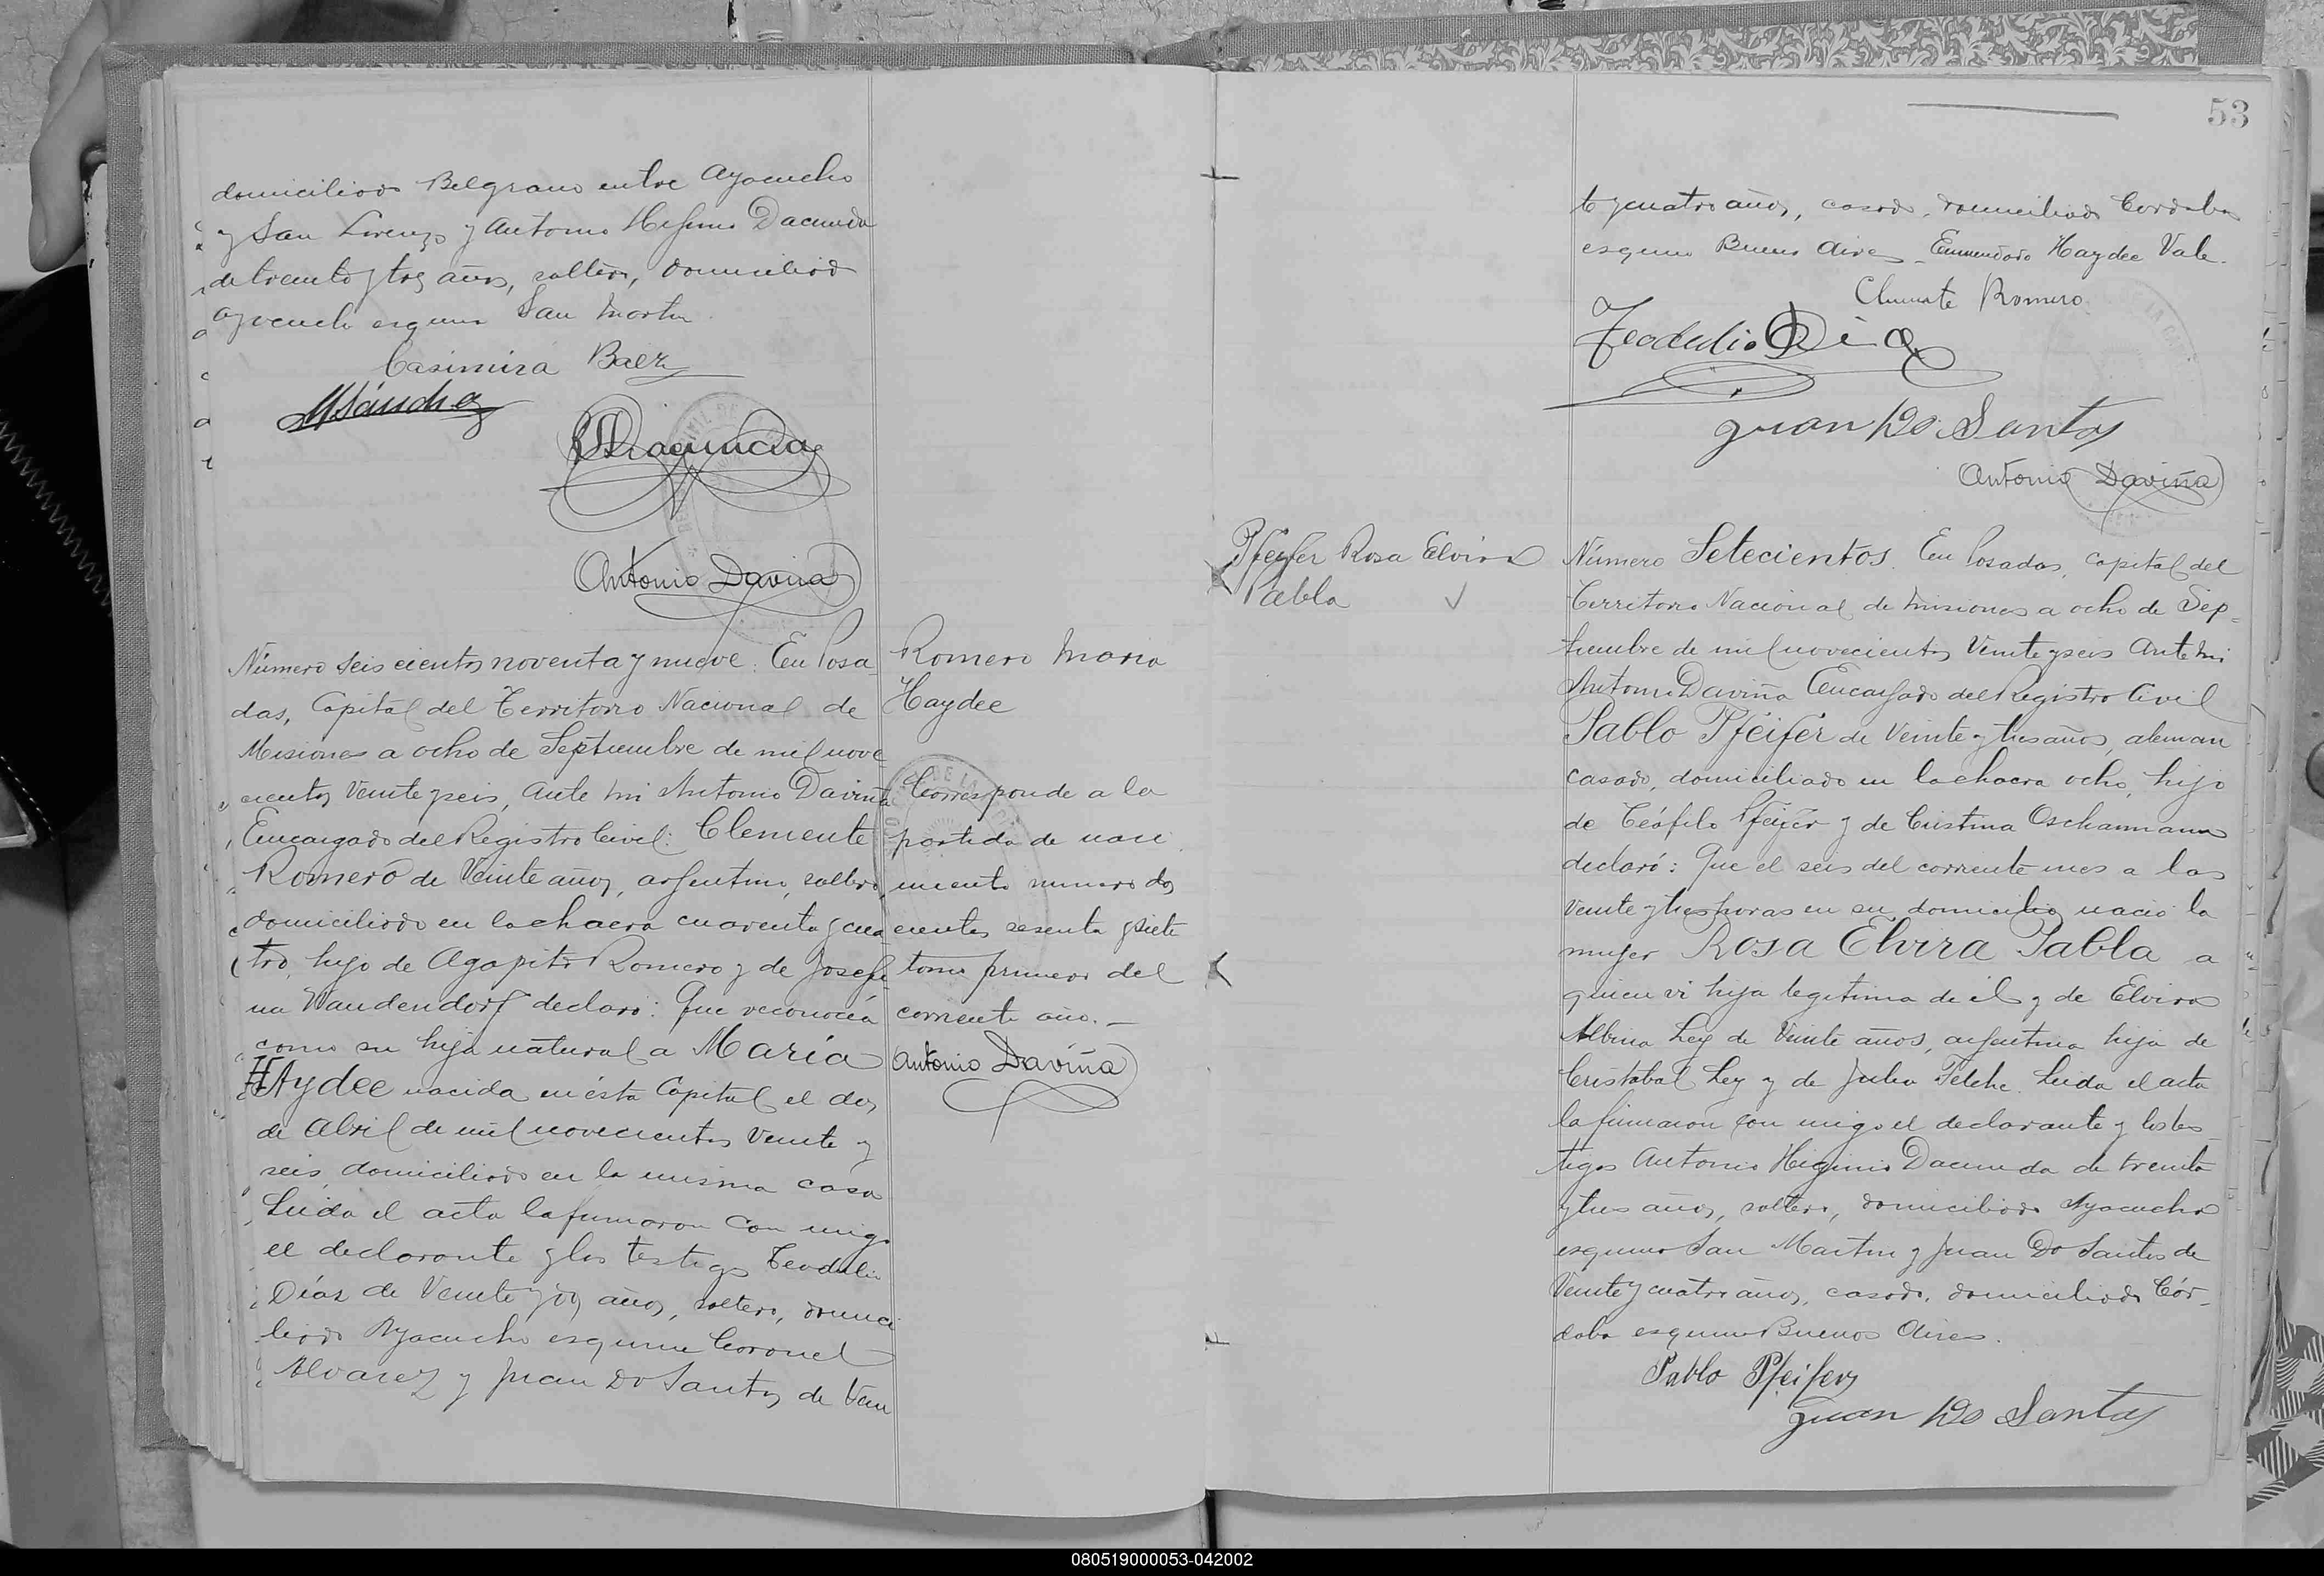 domiciliado Belgrano entre Ayacucho
y San Lorenzo y Antonio Higinio Dacunda
de treinta y tres años, soltero, domiciliado
Ayacucho esquina San Martin.
Casimira Baez
MSánchez
Antonio Daviña
Número seiscientos noventa y nueve. En Posa
das, Capital del Territorio Nacional de
Misiones a ocho de Septiembre de mil nove
cientos veinte y seis, Ante mi Antonio Daviña
Encargado del Registro Civil: Clemente
Romero de Veinte años, argentino, soltero,
domiciliado en la chacra cuarenta y cua
tro, hijo de Agapito Romero y de Josefi
na Vandendorf declaró: Que reconocía
como su hija natural a María
HAydee nacida en ésta Capital el dos
de Abril de mil novecientos veinte y
seis, domiciliado en la misma casa
Leida el acta la firmaron con migo
el declarante y los testigos Teodulio
Díaz de Veinte y dos años, soltero, domici
liado Ayacucho esquina Coronel
Alvarez y Juan Do Santos de Vein
Romero Maria
Haydee
Corresponde a la
partida de naci
miento numero dos
cientos sesenta y siete
tomo primero del
corriente año. —
Antonio Daviña
53
te y cuatro años, casado, domiciliado Cordoba
esquina Buenos Aires - Enmendado Haydee Vale.
Clemente Romero
Teodulio Diaz
Juan Do Santos
Antonio Daviña
Pfeyfer Rosa Elvira
Pabla
Número Setecientos. En Posadas, Capital del
Territorio Nacional de Misiones a ocho de Sep-
tiembre de mil novecientos Veinte y seis Ante mi
Antonio Daviña Encargado del Registro Civil
Pablo Pfeifer de Veinte y tres años, aleman
casado, domiciliado en la chacra ocho, hijo
de Teófilo Pfeifer y de Cristina Oschanmann
declaró: Que el seis del corriente mes a las
veinte y tres horas en su domicilio nació la
mujer Rosa Elvira Pabla a
quien vi hija legitima de él y de Elvira
Albina Ley de Veinte años, argentina hija de
Cristobal Ley y de Julia Telche. Leida el acta
la firmaron con migo el declarante y los tes-
tigos Antonio Higinio Dacunda de treinta
y tres años, soltero, domiciliado Ayacucho
esquina San Martin y Juan Do Santos de
Veinte y cuatro años, casado, domiciliado Cór-
doba esquina Buenos Aires.
Pablo Pfeifer
Juan Do Santos
080519000053-042002